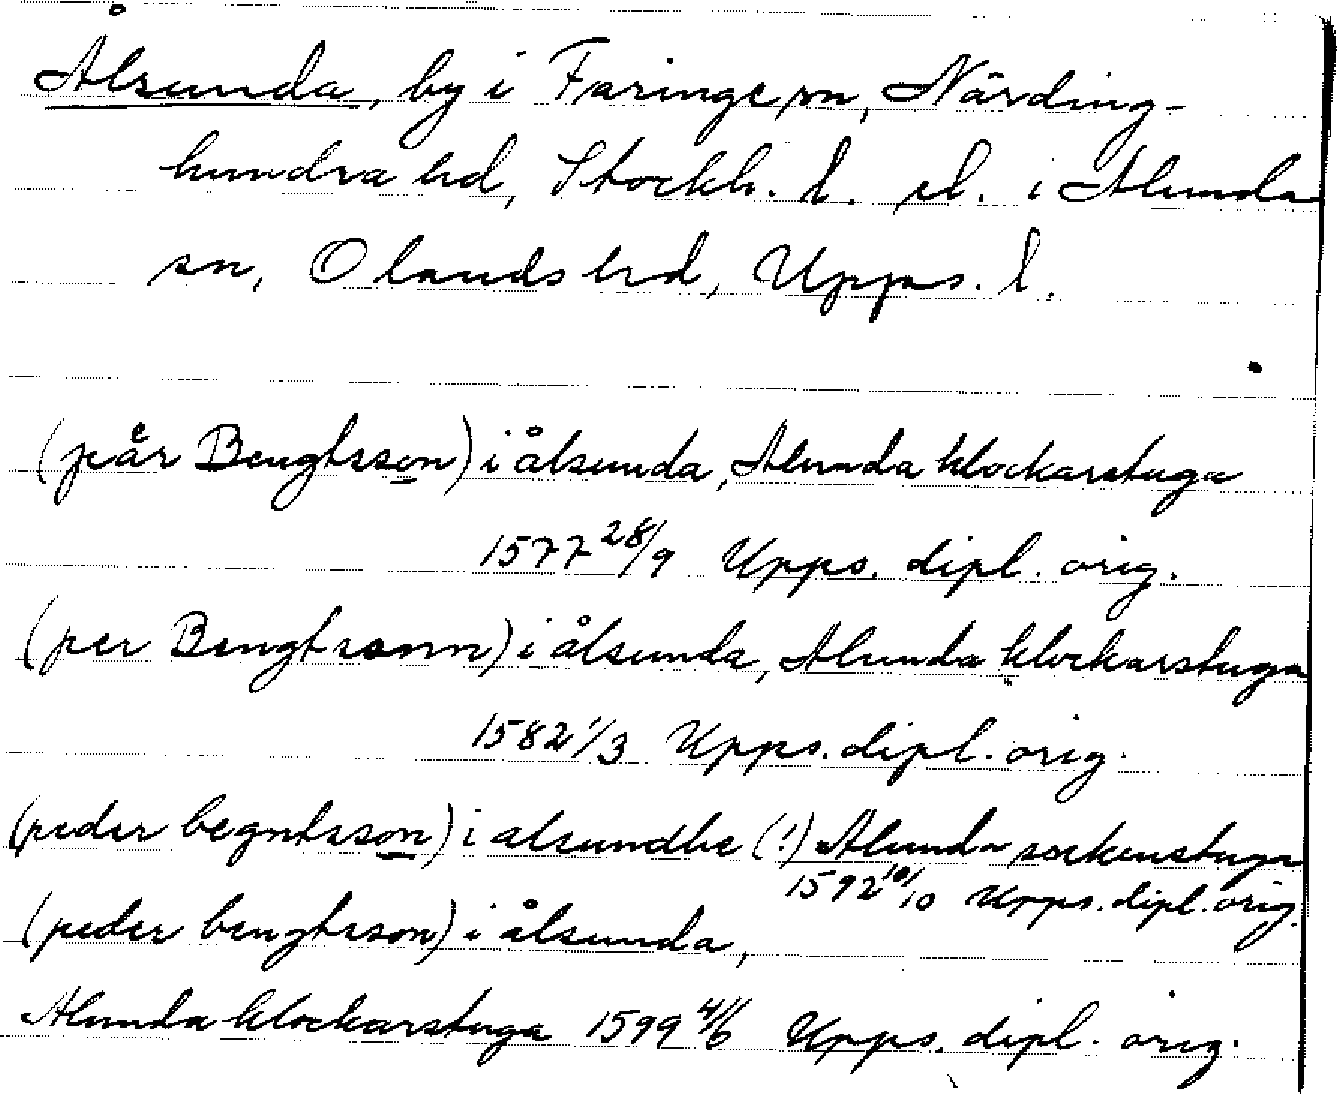 Ålsunda, by i Faringe sn, Närding-
hundra hd, Stockh. l. el. i Alunda
sn, Olands hd, Upps. l.
(pår Bengtsson) i ålsunda, Alunda klockarstuga
1577 28/9 Upps. dipl. orig.
(per Bengtsonn) i ålsunda, Alunda klockarstuga
1582 1/3 Upps. dipl. orig.
(peder begntsson) i alsundhe (!) Alunda sockenstuga
1592 10/10 Upps. dipl. orig.
(peder bengtsson) i ålsunda,
Alunda klockarstuga 1599 4/6 Upps. dipl. orig.